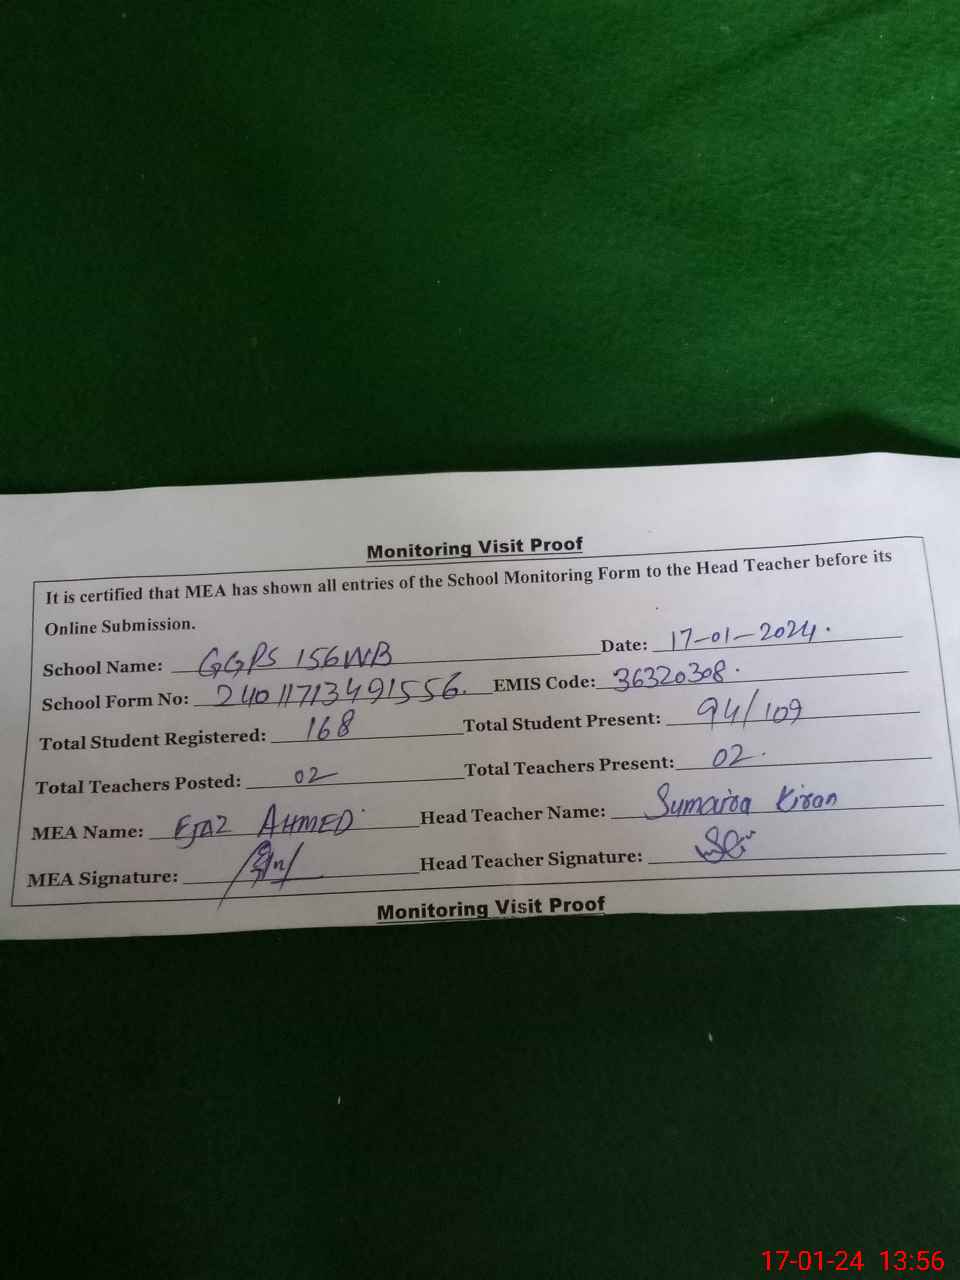 Monitoring Visit Proof
It is certified that MEA has shown all entries of the School Monitoring Form to the Head Teacher before its
Online Submission.
School Name: GGPS 156WB Date: 17-01-2024.
School Form No: 24011713491556. EMIS Code: 36320308.
Total Student Registered: 168 Total Student Present: 94/109
Total Teachers Posted: 02 Total Teachers Present: 02.
MEA Name: EJAZ AHMED Head Teacher Name: Sumaira Kiran
MEA Signature: Head Teacher Signature:
Monitoring Visit Proof
17-01-24 13:56